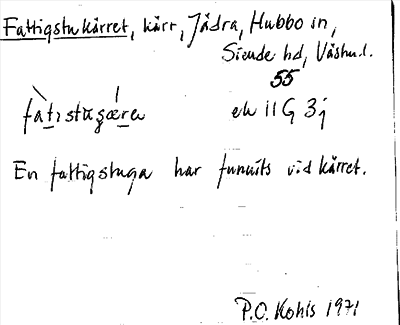 Fattigstukärret, kärr, Jädra, Hubbo sn,
Siende hd, Västm.l.
55
ek 11 G 3 j
En fattigstuga har funnits vid kärret.
P.O. Kohls 1971